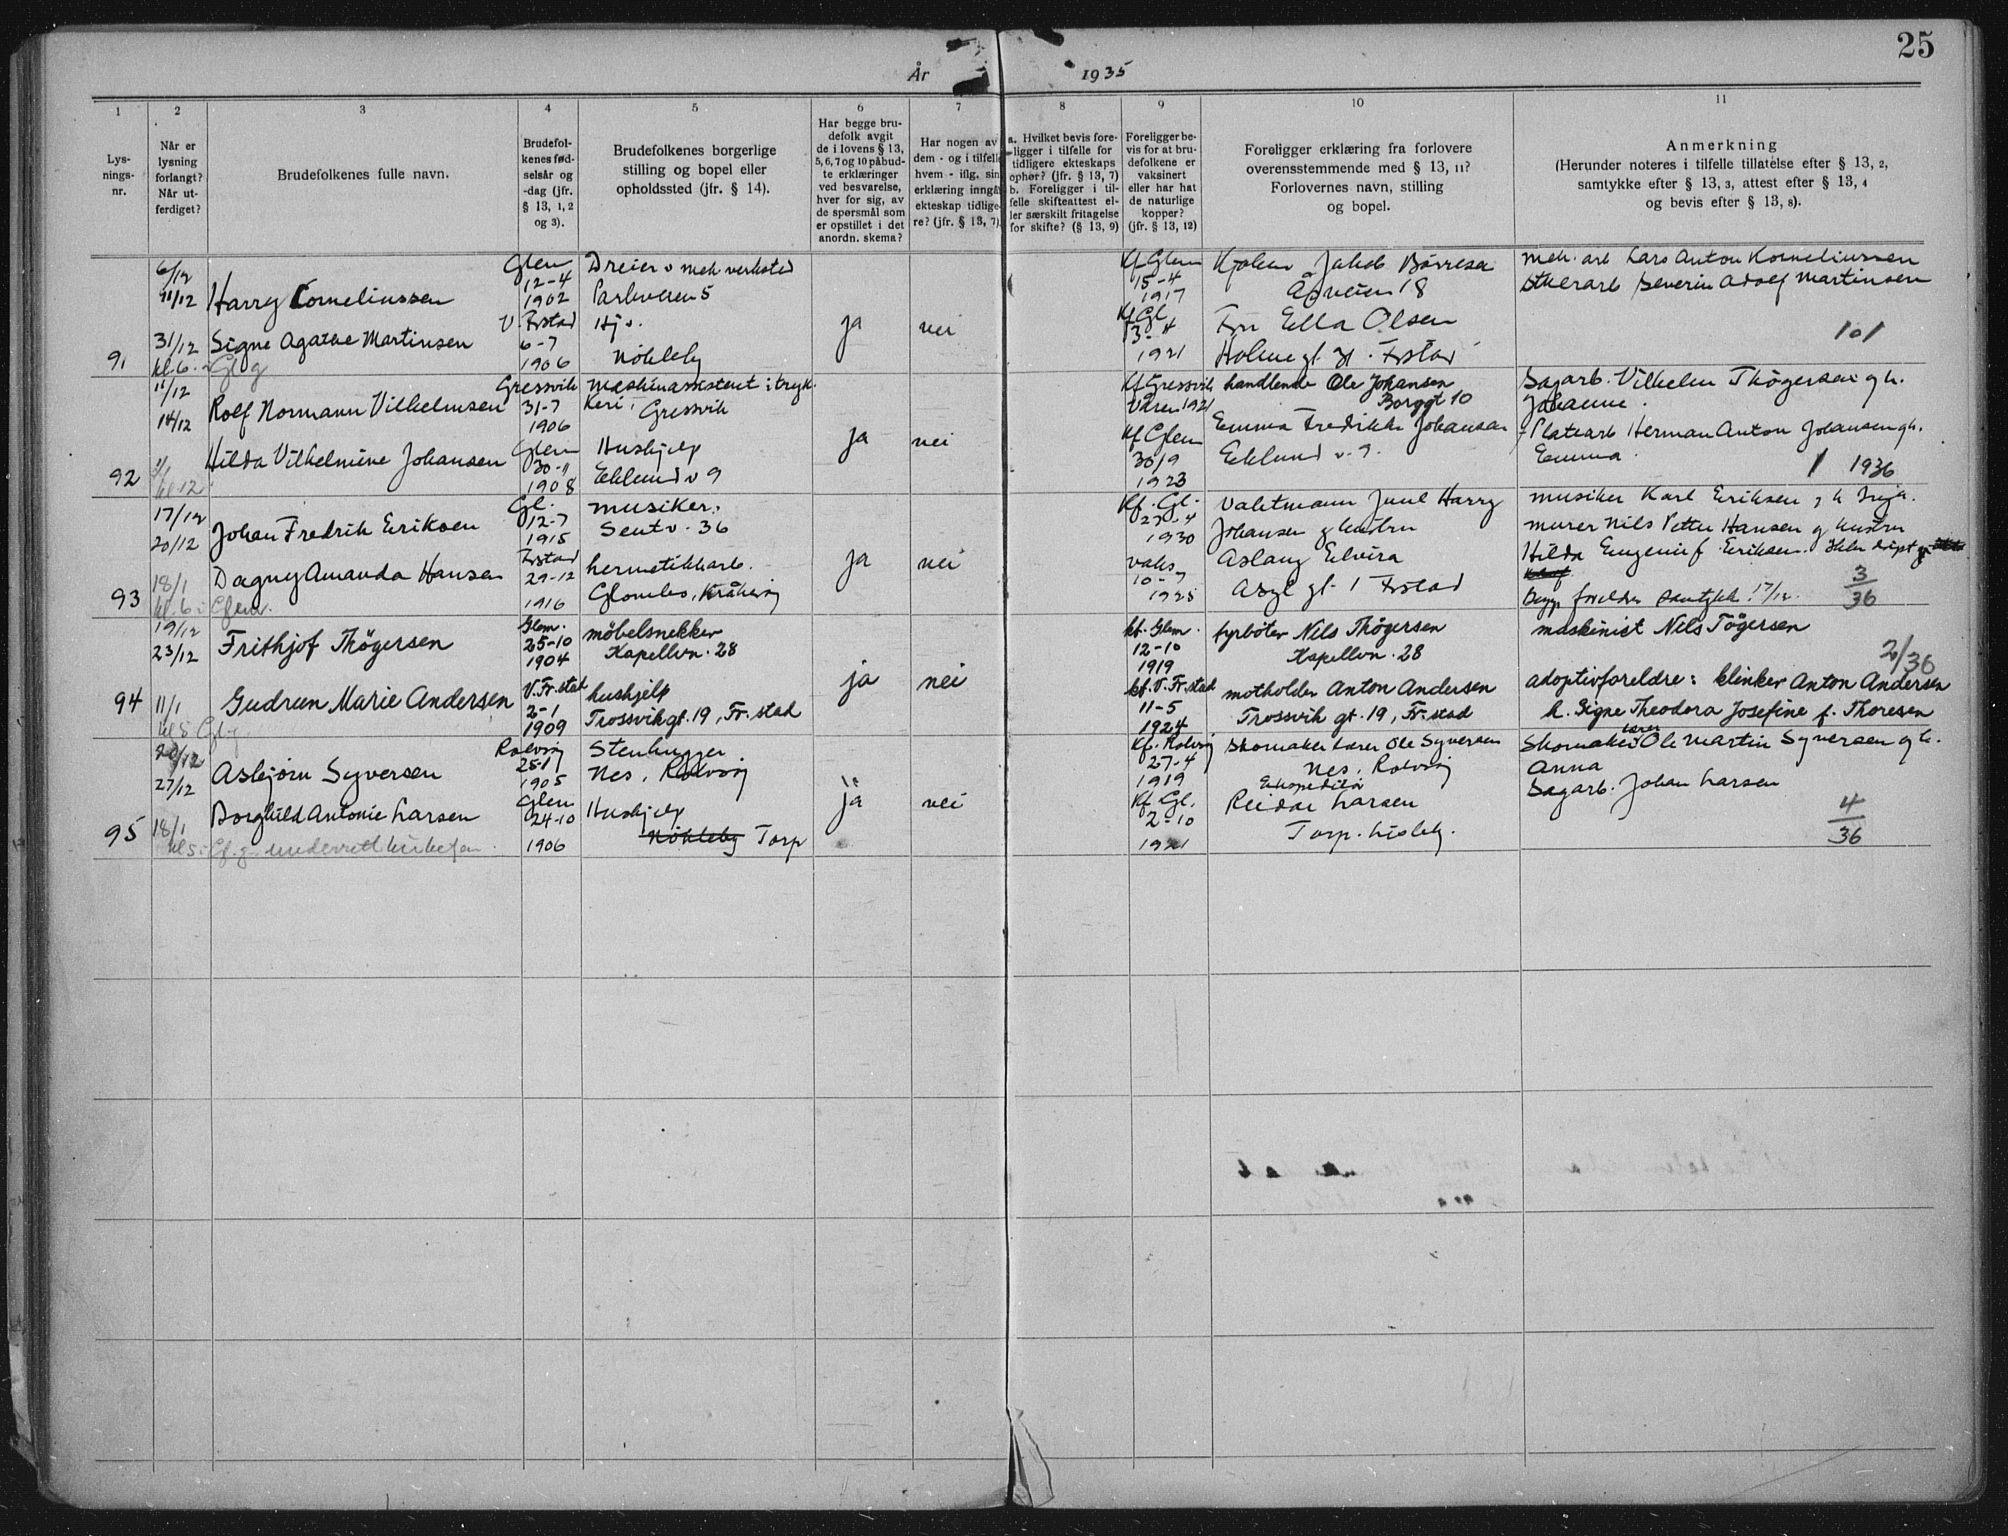 25
År 1935
1 2 3 4 5 6 7 8 9 10 11
Lys-
nings-
nr.
Når er
lysning
forlangt?
Når ut-
ferdiget?
Brudefolkenes fulle navn.
Brudefol-
kenes fød-
selsår og
-dag (jfr.
§ 13, 1, 2
og 3).
Brudefolkenes borgerlige
stilling og bopel eller
opholdssted (jfr. § 14).
Har begge bru-
defolk avgit
de i lovens § 13,
5, 6, 7 og 10 påbud-
te erklæringer
ved besvarelse,
hver for sig, av
de spørsmål som
er opstillet i det
anordn. skema?
Har nogen av
dem - og i tilfelle
hvem - iflg. sin
erklæring inngåt
ekteskap tidlige-
re? (jfr. § 13, 7).
a. Hvilket bevis fore-
ligger i tilfelle for
tidligere ekteskaps
ophør? (jfr. § 13, 7)
b. Foreligger i til-
felle skifteattest el-
ler særskilt fritagelse
for skifte? (§ 13, 9)
Foreligger be-
vis for at bru-
defolkene er
vaksinert
eller har hat
de naturlige
kopper?
(jfr. § 13, 12)
Foreligger erklæring fra forlovere
overensstemmende med § 13, 11?
Forlovernes navn, stilling
og bopel.
Anmerkning
(Herunder noteres i tilfelle tillatelse efter § 13, 2,
samtykke efter § 13, 3, attest efter § 13, 4
og bevis efter § 13, 8).
91
6/12
11/12
31/12
kl. 6.
Harry Corneliussen
Signe Agathe Martinsen
Glem
12-4
1902
V. Frstad
6-7
1906
Dreier v mek verksted
Parkveien 5
Hj v.
Nökleby
ja
nei
Kf Glem
15-4
1917
Kf Gl
3-4
1921
Jakob Börresen
18
Fru Ella Olsen
Holme gt 31. Frstad
mek. arb Lars Anton Korneliussen
Severin Adolf Martinsen
101
92
11/12
14/12
kl 12
Rolf Normann Vilhelmsen
Hilda Vilhelmine Johansen
Gressvik
31-7
1906
Glem
30-11
1908
Maskinassistent i tryk.
keri,
Gressvik
Hushjelp
Eklund v 9
ja
nei
Kf Gressvik
Våren 1921
Kf Glem
30/9
1923
handlende Ole Johansen
Borggt 10
Emma Fredikke Johansen
Eklund v. 9.
Sagarb. Vilhelm Thögersen og h.
Johanne.
Platearb Herman Anton Johansen g h.
Emma.
1 1936
93
17/12
20/12
18/1
kl. 6 i Glem.
Johan Fredrik Eriksen
Dagny Amanda Hansen
Gl.
12-7
1915
Frstad
29-12
1916
musiker.
Sentv. 36
hermetikkarb.
Glombo, Kråkeröy
ja
nei
Kf. Gl.
27-4
1930
vaks.
10-7
1925
Vaktmann Juul Harry
Johansen g hustru
Aslaug Elvira
Asyl gt. 1 Frstad
musiker Karl Eriksen g h
murer Nils Petter Hansen g hustru
Hilda Eugenie f. Eriksen. Ikke döpt
Begge foreldre samtykk. 17/12.
3
36
94
19/12
23/12
11/1
kl 5 Gl.g.
Frithjof Thögersen
Gudrun Marie Andersen
Glem.
25-10
1904
V. Fr.stad
2-1
1909
möbelsnekker
Kapellvn. 28
hushjelp
Trossvikgt. 19, Fr.stad
ja
nei
kf. Glem.
12-10
1919
kf. V. Fr.stad
11-5
1924
fyrböter Nils Thögersen
Kapellvn. 28
motholder Anton Andersen
Trossvik gt. 19, Fr.stad
maskinist Nils Tögersen
2/36
adoptivforeldre: klinker Anton Andersen
h. Signe Theodora Josefine f. Thoresen
95
20/12
27/12
18/1
Asbjörn Syversen
Borghild Antonie Larsen
Rolvsöy
25-1
1905
Glem
24-10
1906
Stenhugger
Nes, Rolvsöy
Hushjelp
Nökleby Torp
ja
nei
Kf. Rolvsöy
27-4
1919
Kf Gl.
2-10
1921
Skomaker lærer Ole Syversen
Nes, Rolvsöy
Ekspeditör
Reidar Larsen
Torp. Lisleby.
Skomaker lærer Ole Martin Syversen g h.
Anna
Sagarb. Johan Larsen
4
36